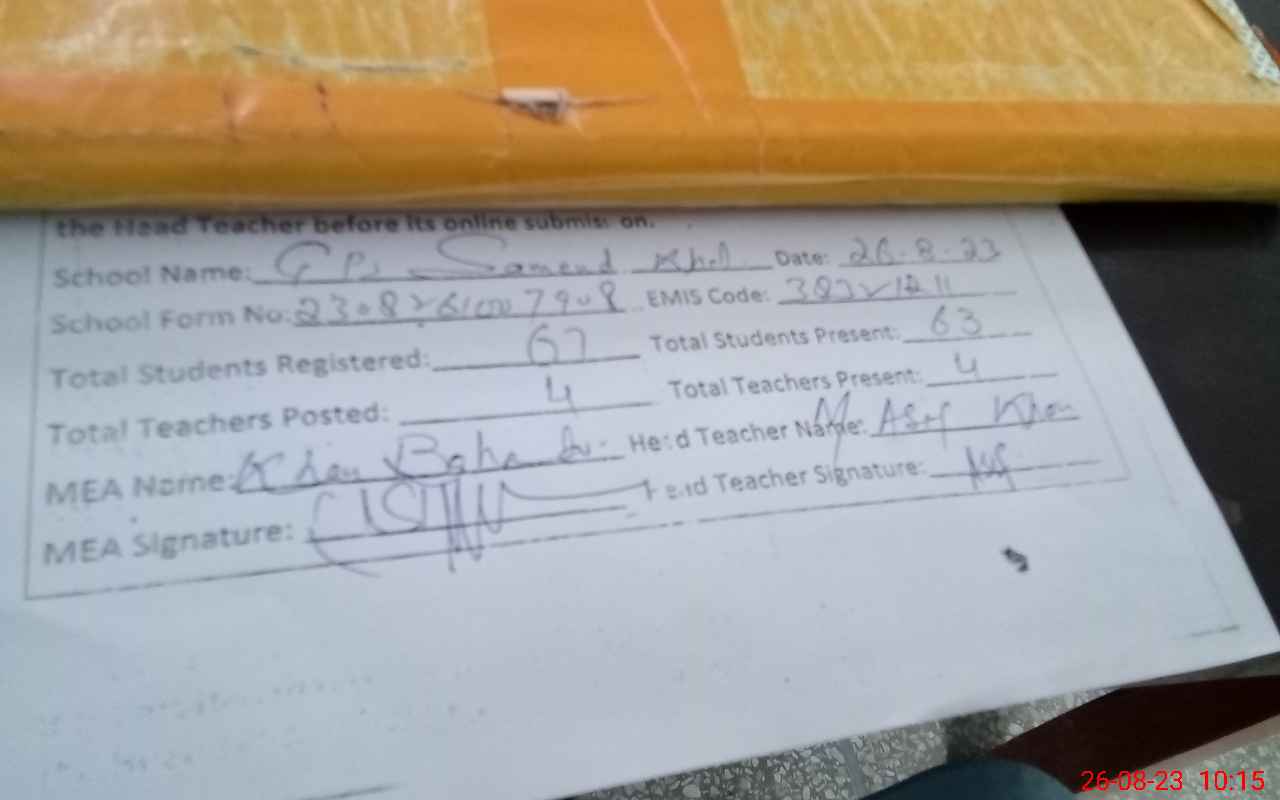 the Head Teacher before its online submission.
School Name: GPS Samend Khel Date: 26-8-23
School Form No: EMIS Code:
Total Students Registered: 67 Total Students Present: 63
Total Teachers Posted: 4 Total Teachers Present: 4
MEA Name: Khan Bahadur Head Teacher Name: M. Asif Khan
MEA Signature: Head Teacher Signature: Asif
26-08-23 10:15